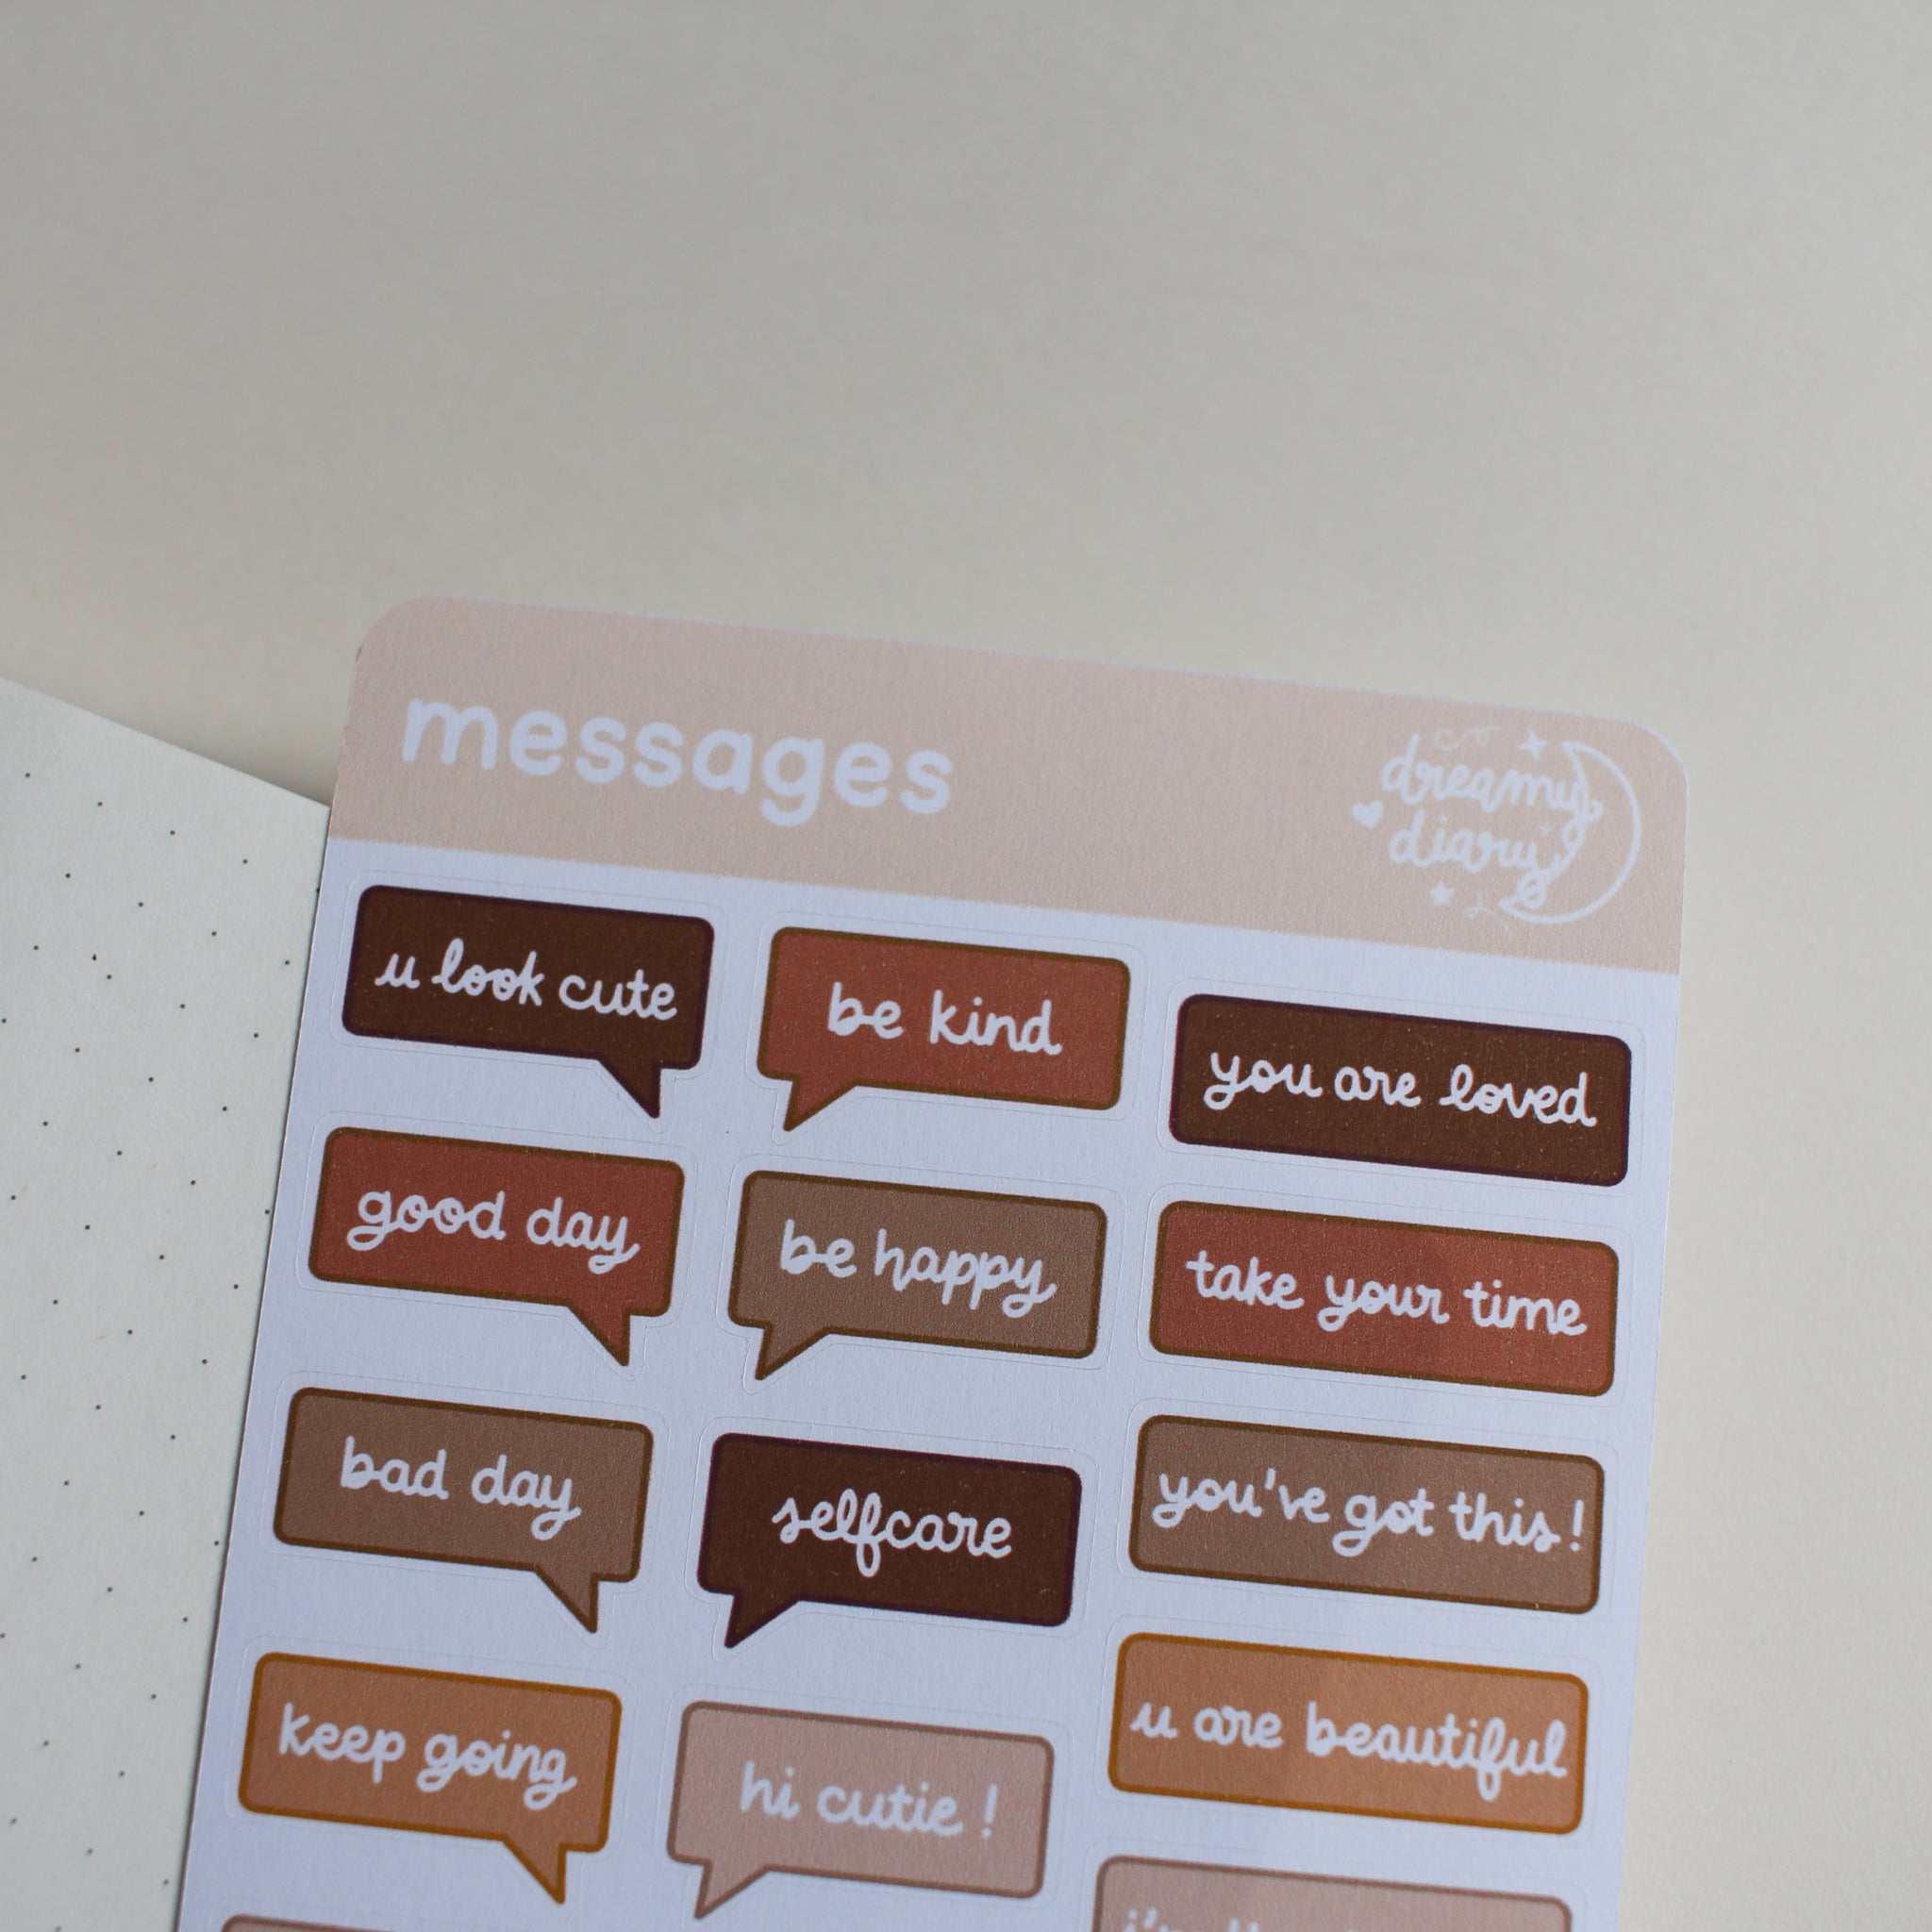 messages
dreamy
diary
u look cute
be kind
you are loved
good day
be happy
take your time
bad day
selfcare
you've got this!
keep going
hi cutie!
u are beautiful